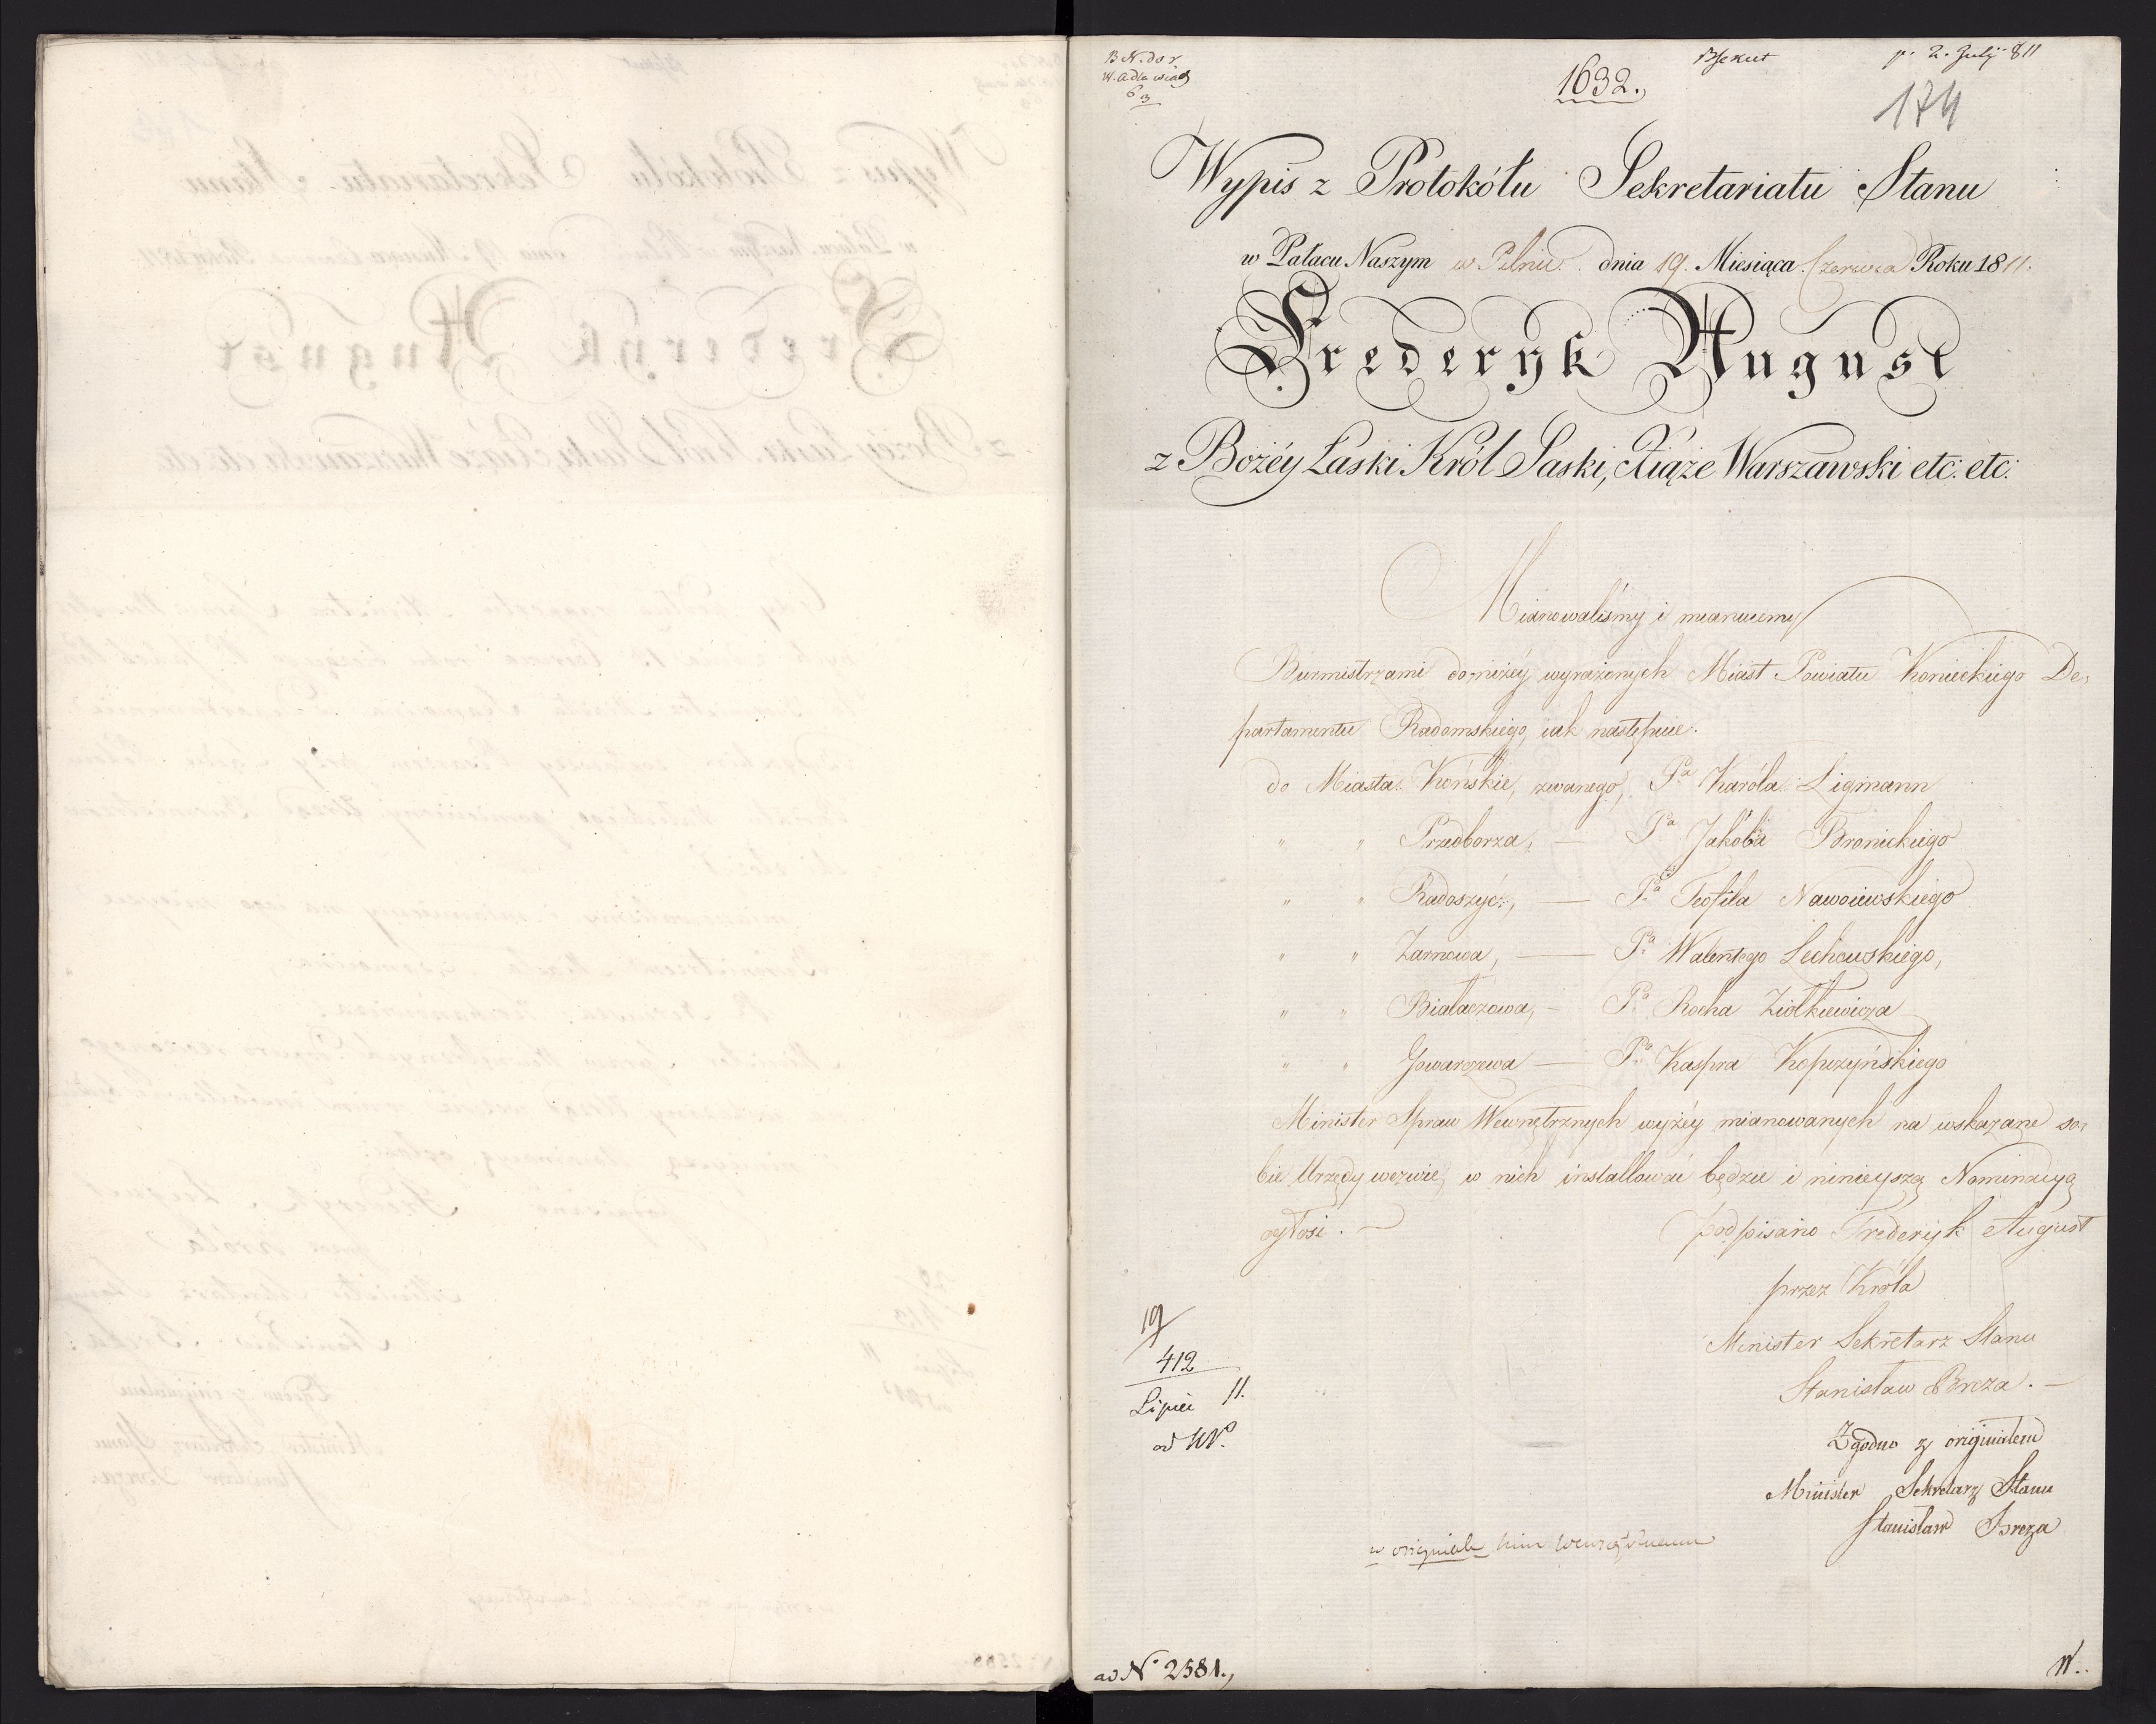 1632.
p. 2. July 811
174
Wypis z Protokółu Sekretariatu Stanu
w Pałacu Naszym w Pilnic dnia 19. Miesiąca Czerwca Roku 1811.
Frederyk August
z Bożéy Łaski Król Saski, Xiąże Warszawski etc: etc:
Mianowaliśmy i mianuiemy
Burmistrzami do niżéy wyrażonych Miast Powiatu Konieckiego De,
partamentu Radomskiego, iak następuie.
do Miasta Końskie, zwanego, Pa Karóla Ligmann
" " Przedborza, — Pa Jakóba Bronickiego
" " Radoszyc, — Pa Teofila Nawoiewskiego
" " Żarnowa, — Pa Walentego Lechowskiego,
" " Białaczowa, — Pa Rocha Ziółkiewicza
" " Gowarczowa — Pa Kaspra Kopczyńskiego
Minister Spraw Wewnętrznych wyżéy mianowanych na wskazane so,
bie Urzędy wezwie, w nich installować będzie i ninieyszą Nominacyą
ogłosi. —
podpisano Frederyk August
przez Króla
Minister Sekretarz Stanu
Stanisław Breza. —
19
412
Lipiec 11.
ad
Zgodno z originałem
Minister Sekretarz Stanu
Stanisław Breza
w originale
ad No 2581.,
W..